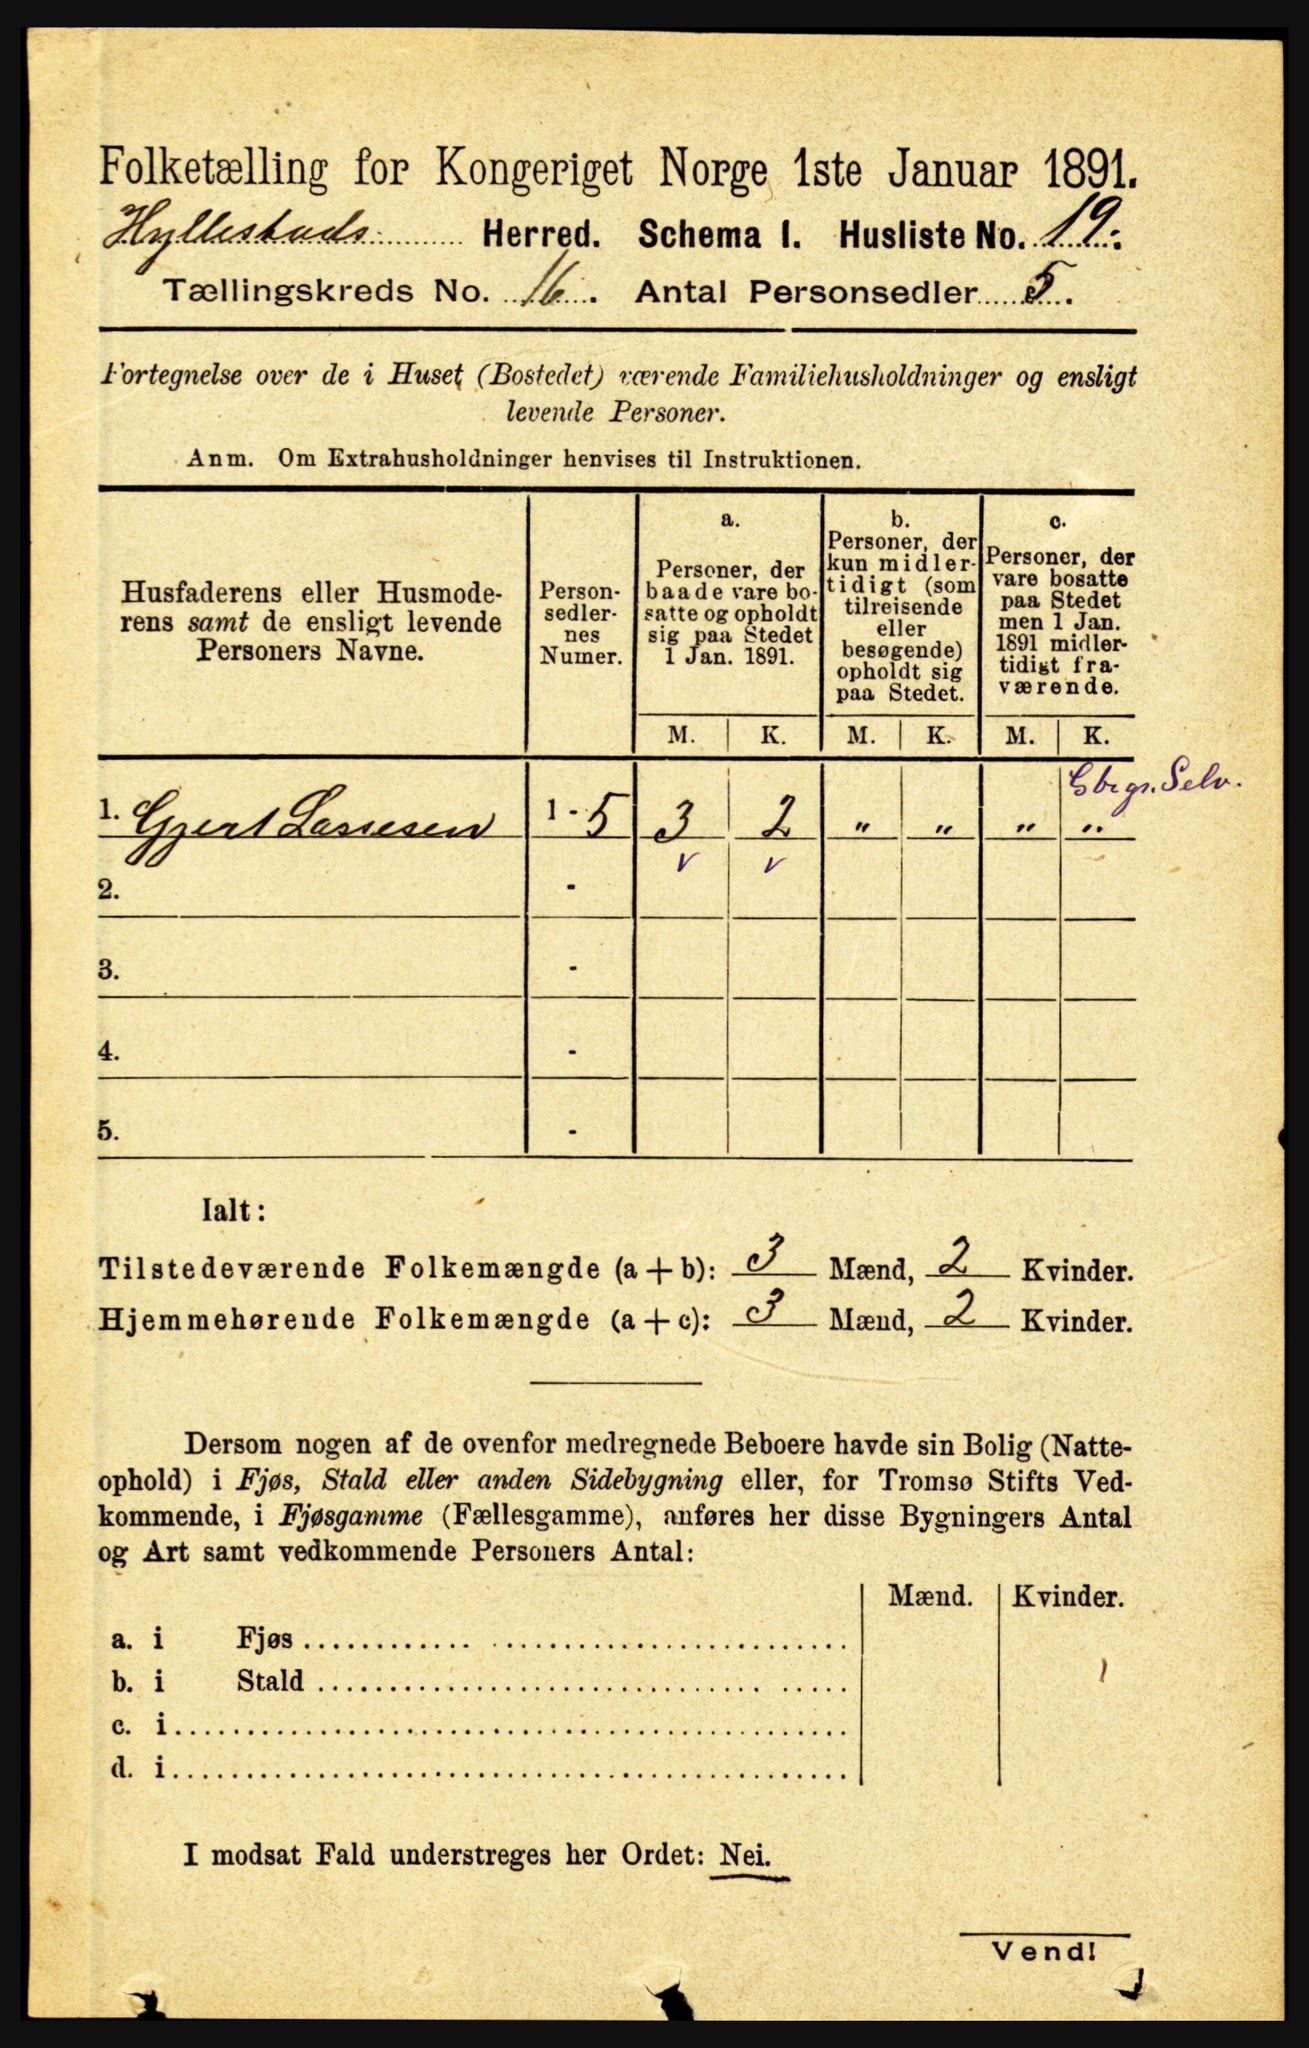 Folketælling for Kongeriget Norge 1ste Januar 1891.
Hyllestads Herred. Schema I. Husliste No. 19.
Tællingskreds No. 16. Antal Personsedler 5.
Fortegnelse over de i Huset (Bostedet) værende Familiehusholdninger og ensligt
levende Personer.
Anm. Om Extrahusholdninger henvises til Instruktionen.
Husfaderens eller Husmode-
rens samt de ensligt levende
Personers Navne.
Person-
sedler-
nes
Numer.
a.
Personer, der
baade vare bo-
satte og opholdt
sig paa Stedet
1 Jan. 1891.
b.
Personer, der
kun midler-
tidigt (som
tilreisende
eller
besøgende)
opholdt sig
paa Stedet.
c.
Personer, der
vare bosatte
paa Stedet
men 1 Jan.
1891 midler-
tidigt fra-
værende.
M. K. M. K. M. K.
Gbrgr. Selv.
1. Gjert Lassesen 1 - 5 3 2 " " " "
v v
2. -
3. -
4. -
5. -
Ialt:
Tilstedeværende Folkemængde (a + b): 3 Mænd, 2 Kvinder.
Hjemmehørende Folkemængde (a + c): 3 Mænd, 2 Kvinder.
Dersom nogen af de ovenfor medregnede Beboere havde sin Bolig (Natte-
ophold) i Fjøs, Stald eller anden Sidebygning eller, for Tromsø Stifts Ved-
kommende, i Fjøsgamme (Fællesgamme), anføres her disse Bygningers Antal
og Art samt vedkommende Personers Antal:
Mænd. Kvinder.
a. i Fjøs
b. i Stald
c. i
d. i
I modsat Fald understreges her Ordet: Nei.
Vend!